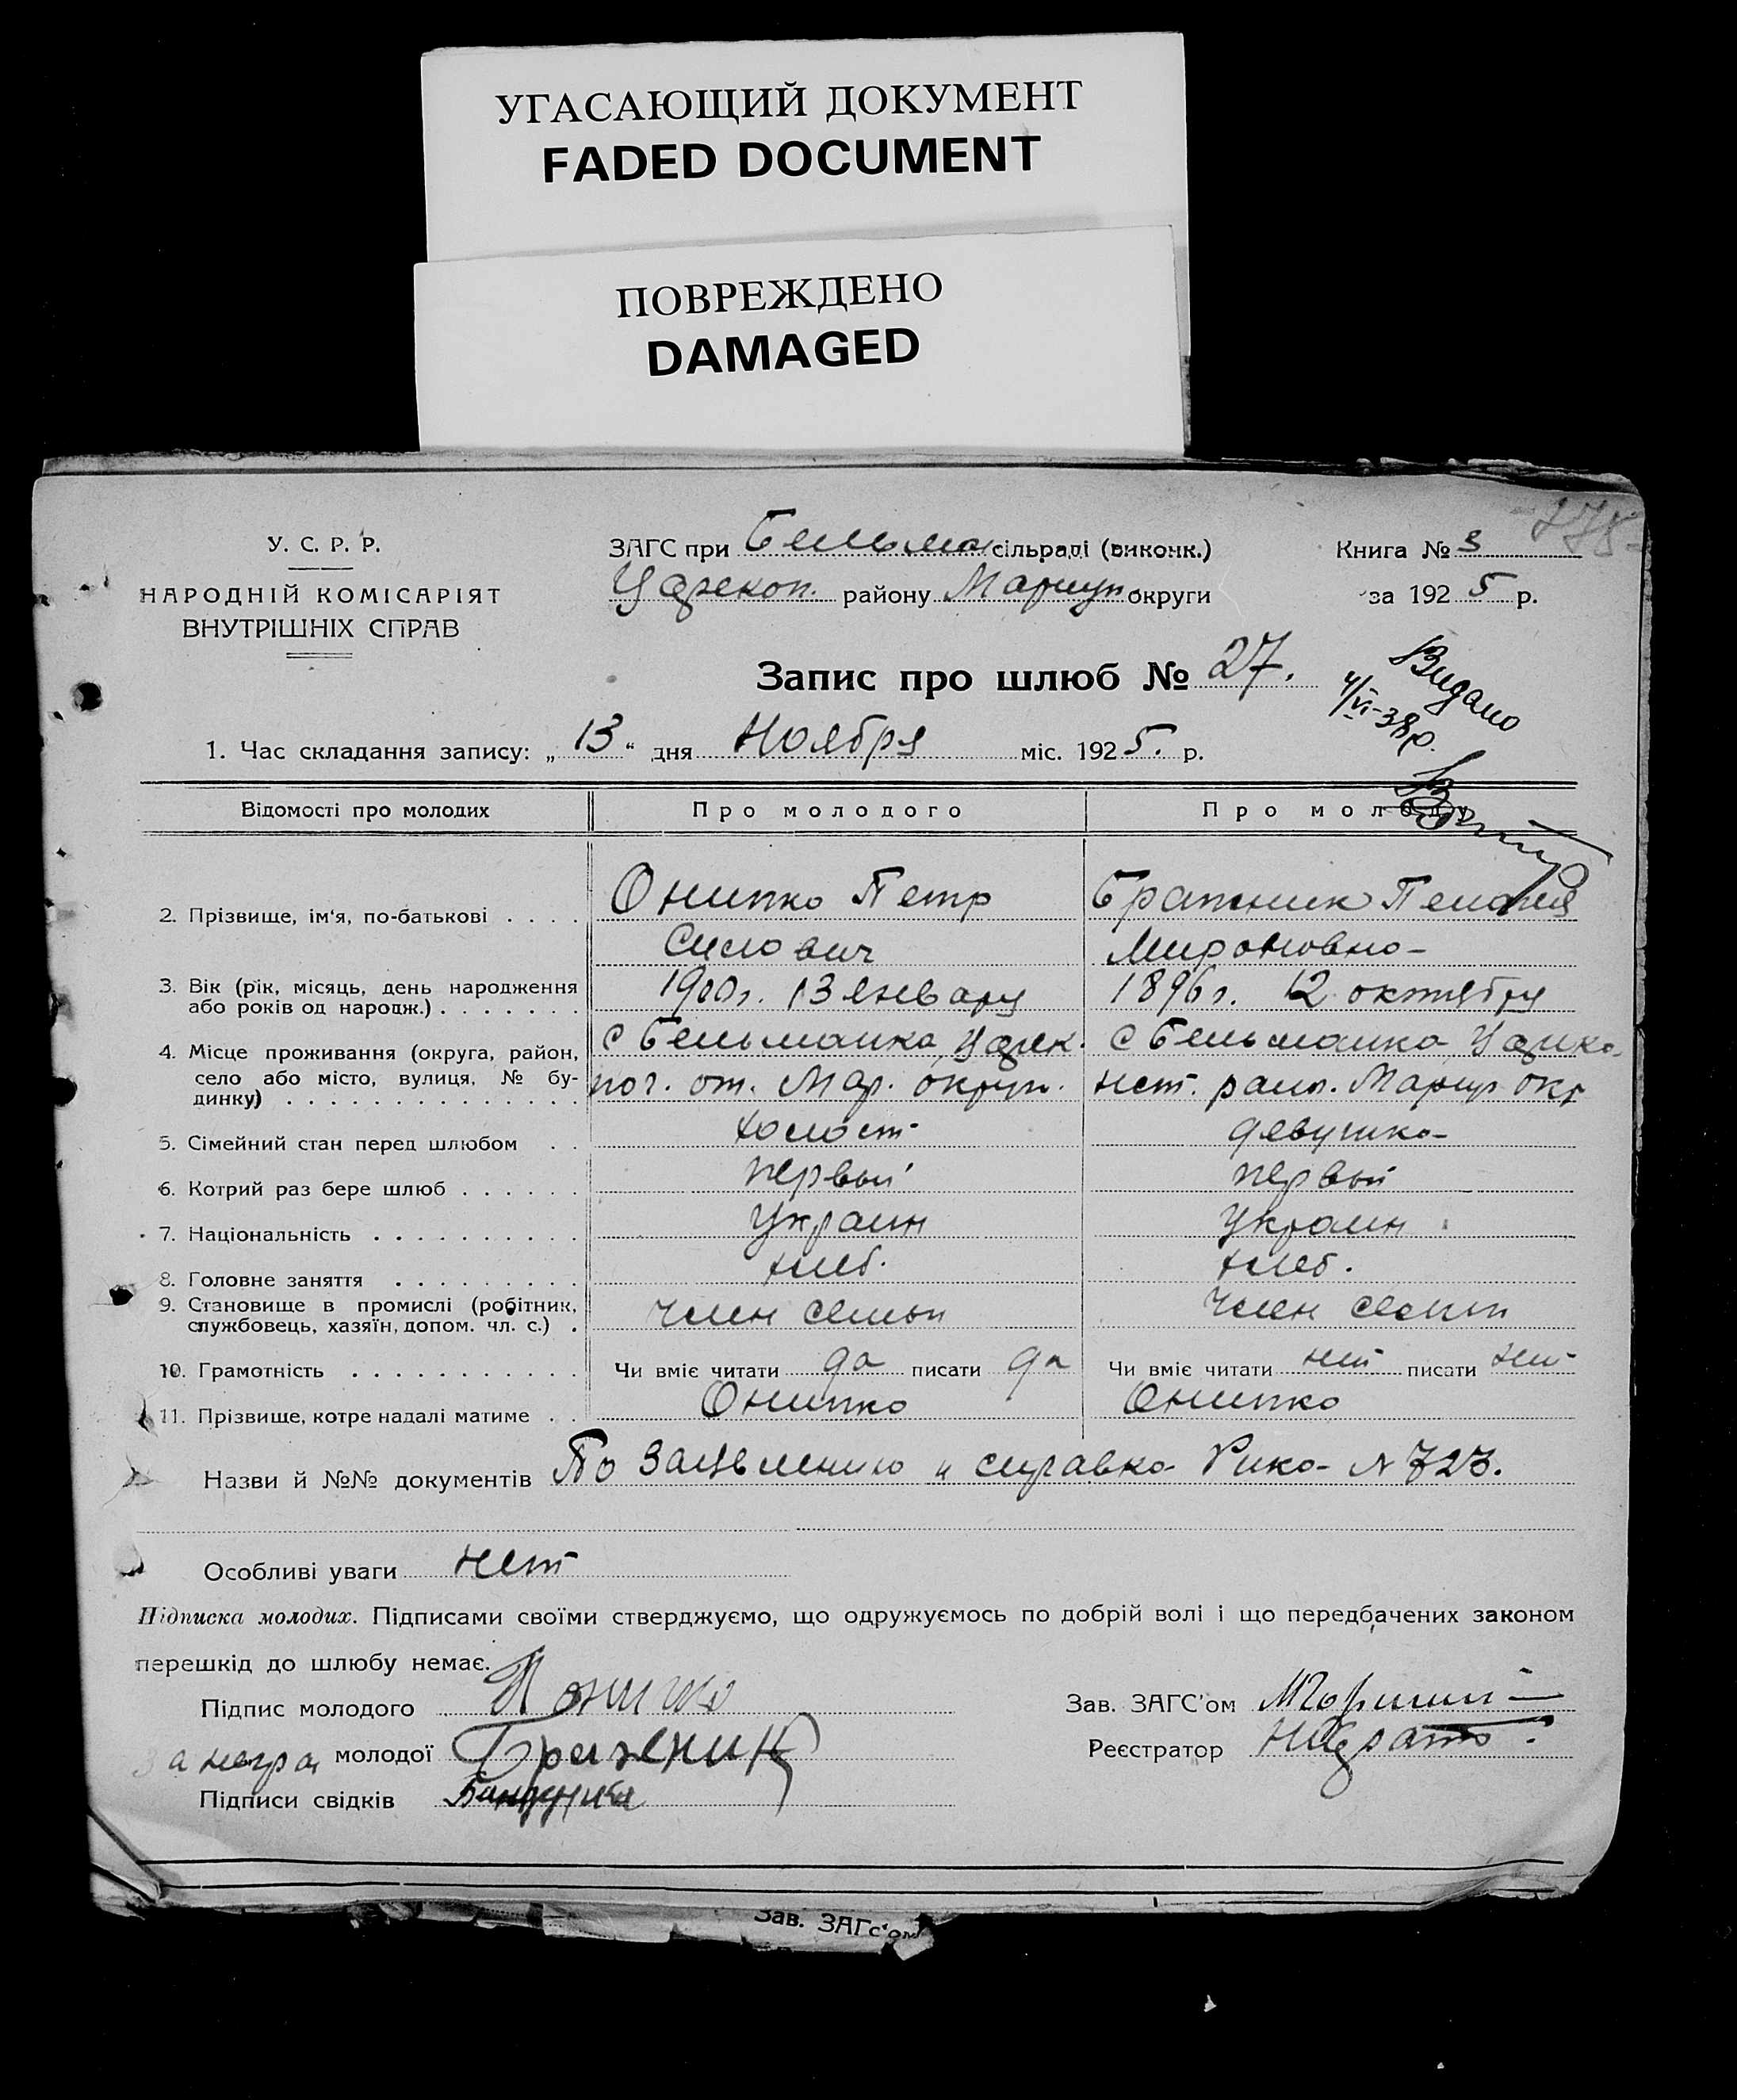 УГАСАЮЩИЙ ДОКУМЕНТ
FADED DOCUMENT
ПОВРЕЖДЕНО
DAMAGED
У. С. Р. Р.
НАРОДНІЙ КОМІСАРІЯТ
ВНУТРІШНІХ СПРАВ
ЗАГС при Бельма сільраді (виконк.)
Царекон. району Мариуп округи
Книга № 3
за 1925 р.
Запис про шлюб № 27.
Видано
4/VI-38р.
1. Час складання запису: „13" дня Ноября міс. 1925. р.
Відомості про молодих Про молодого Про молоду
2. Прізвище, ім'я, по-батькові . . . . Онипко Петр Бражник Пелагия
Силович Мироновна
3. Вік (рік, місяць, день народження
або років од народж.) . . . . . . . 1900г. 13 января 1896г. 12 октября
4. Місце проживання (округа, район,
село або місто, вулиця, № бу-
динку) . . . . . . . . . . . . . .
с Бельманка, Царек. с Бельманка Царско
окр
5. Сімейний стан перед шлюбом . . холост девушка
6. Котрий раз бере шлюб . . . . . . первый первый
7. Національність . . . . . . . . . . Украин Украин
8. Головне заняття . . . . . . . . . хлеб. хлеб.
9. Становище в промислі (робітник,
службовець, хазяїн, допом. чл. с.) . член семьи член семьи
10. Грамотність . . . . . . . . . . . Чи вміє читати да писати да Чи вміє читати нет писати нет
11. Прізвище, котре надалі матиме . . Онипко Онипко
Назви й №№ документів По Заявлению и справка Рика № 723.
Особливі уваги нет
Підписка молодих. Підписами своїми стверджуємо, що одружуємось по добрій волі і що передбачених законом
перешкід до шлюбу немає.
Підпис молодого Зав. ЗАГС'ом
молодої Бражник Реєстратор
Підписи свідків
Зав. ЗАГС'ом